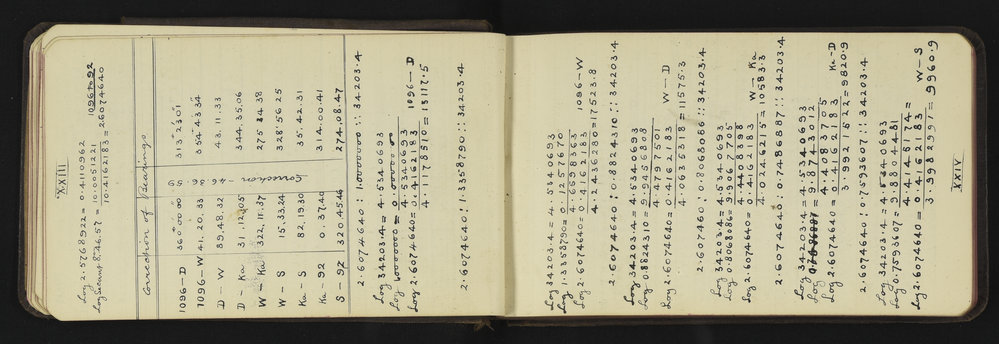 XXIII
Log 2.5768922 = 0.4110962
Log Secant 8°.46'.57" = 10.0051221
10.4162183 = 2.6074640
1096 to 92
Correction of Bearings
1096-D 360.00.00 313°.23'.01"
1096-W 41.20.33 354.43.34
D-W 89.48.32 43.11.33
D-Ka 344.35.06
W-Ka 322.11.37 275.34.38
W-S 15.33.24 328.56.25
Ka-S 82.19.30 35.42.31
Ka-92 0.37.40 314.00.41
S-92 320.45.46 274.08.47
Correction -46.36.59
2.6074640 : 1.0000000 :: 34203.4
Log 34203.4 = 4.5340693
Log 1.0000000 = 0.0000000
4.5340693 1096-D
Log 2.6074640 = 0.4162183
4.1178510 = 13117.5
2.6074641 : 1.3358790 :: 34203.4
Log 34203.4 = 4.5340693
Log 1.3358790 = 0.1257670
4.6598363 1096-W
Log 2.6074640 = 0.4162183
4.2436280 = 17523.8
2.6074640 : 0.8824310 :: 34203.4
Log 34203.4 = 4.5340693
Log 0.8824310 = 9.9456808
4.4797501 W-D
Log 2.6074640 = 0.4162183
4.0635318 = 11575.3
2.607460 : 0.8068086 :: 34203.4
Log 34203.4 = 4.5340693
Log 0.8068086 = 9.9067705
4.4408398 W-Ka
Log 2.6074640 = 0.4162183
4.0246215 = 10583.3
2.6074640 : 0.7486887 :: 34203.4
Log 34203.4 = 4.5340693
Log 0.7486887 = 9.8743012
4.4083705
Log 2.6074640 = 0.4162183 Ka-D
3.9921522 = 9820.9
2.6074640 : 0.7593607 :: 34203.4
Log 34203.4 = 4.5340693
Log 0.7593607 = 9.8804481
4.4145174
Log 2.6074640 = 0.4162183 W-S
3.9982991 = 9960.9
XXIV